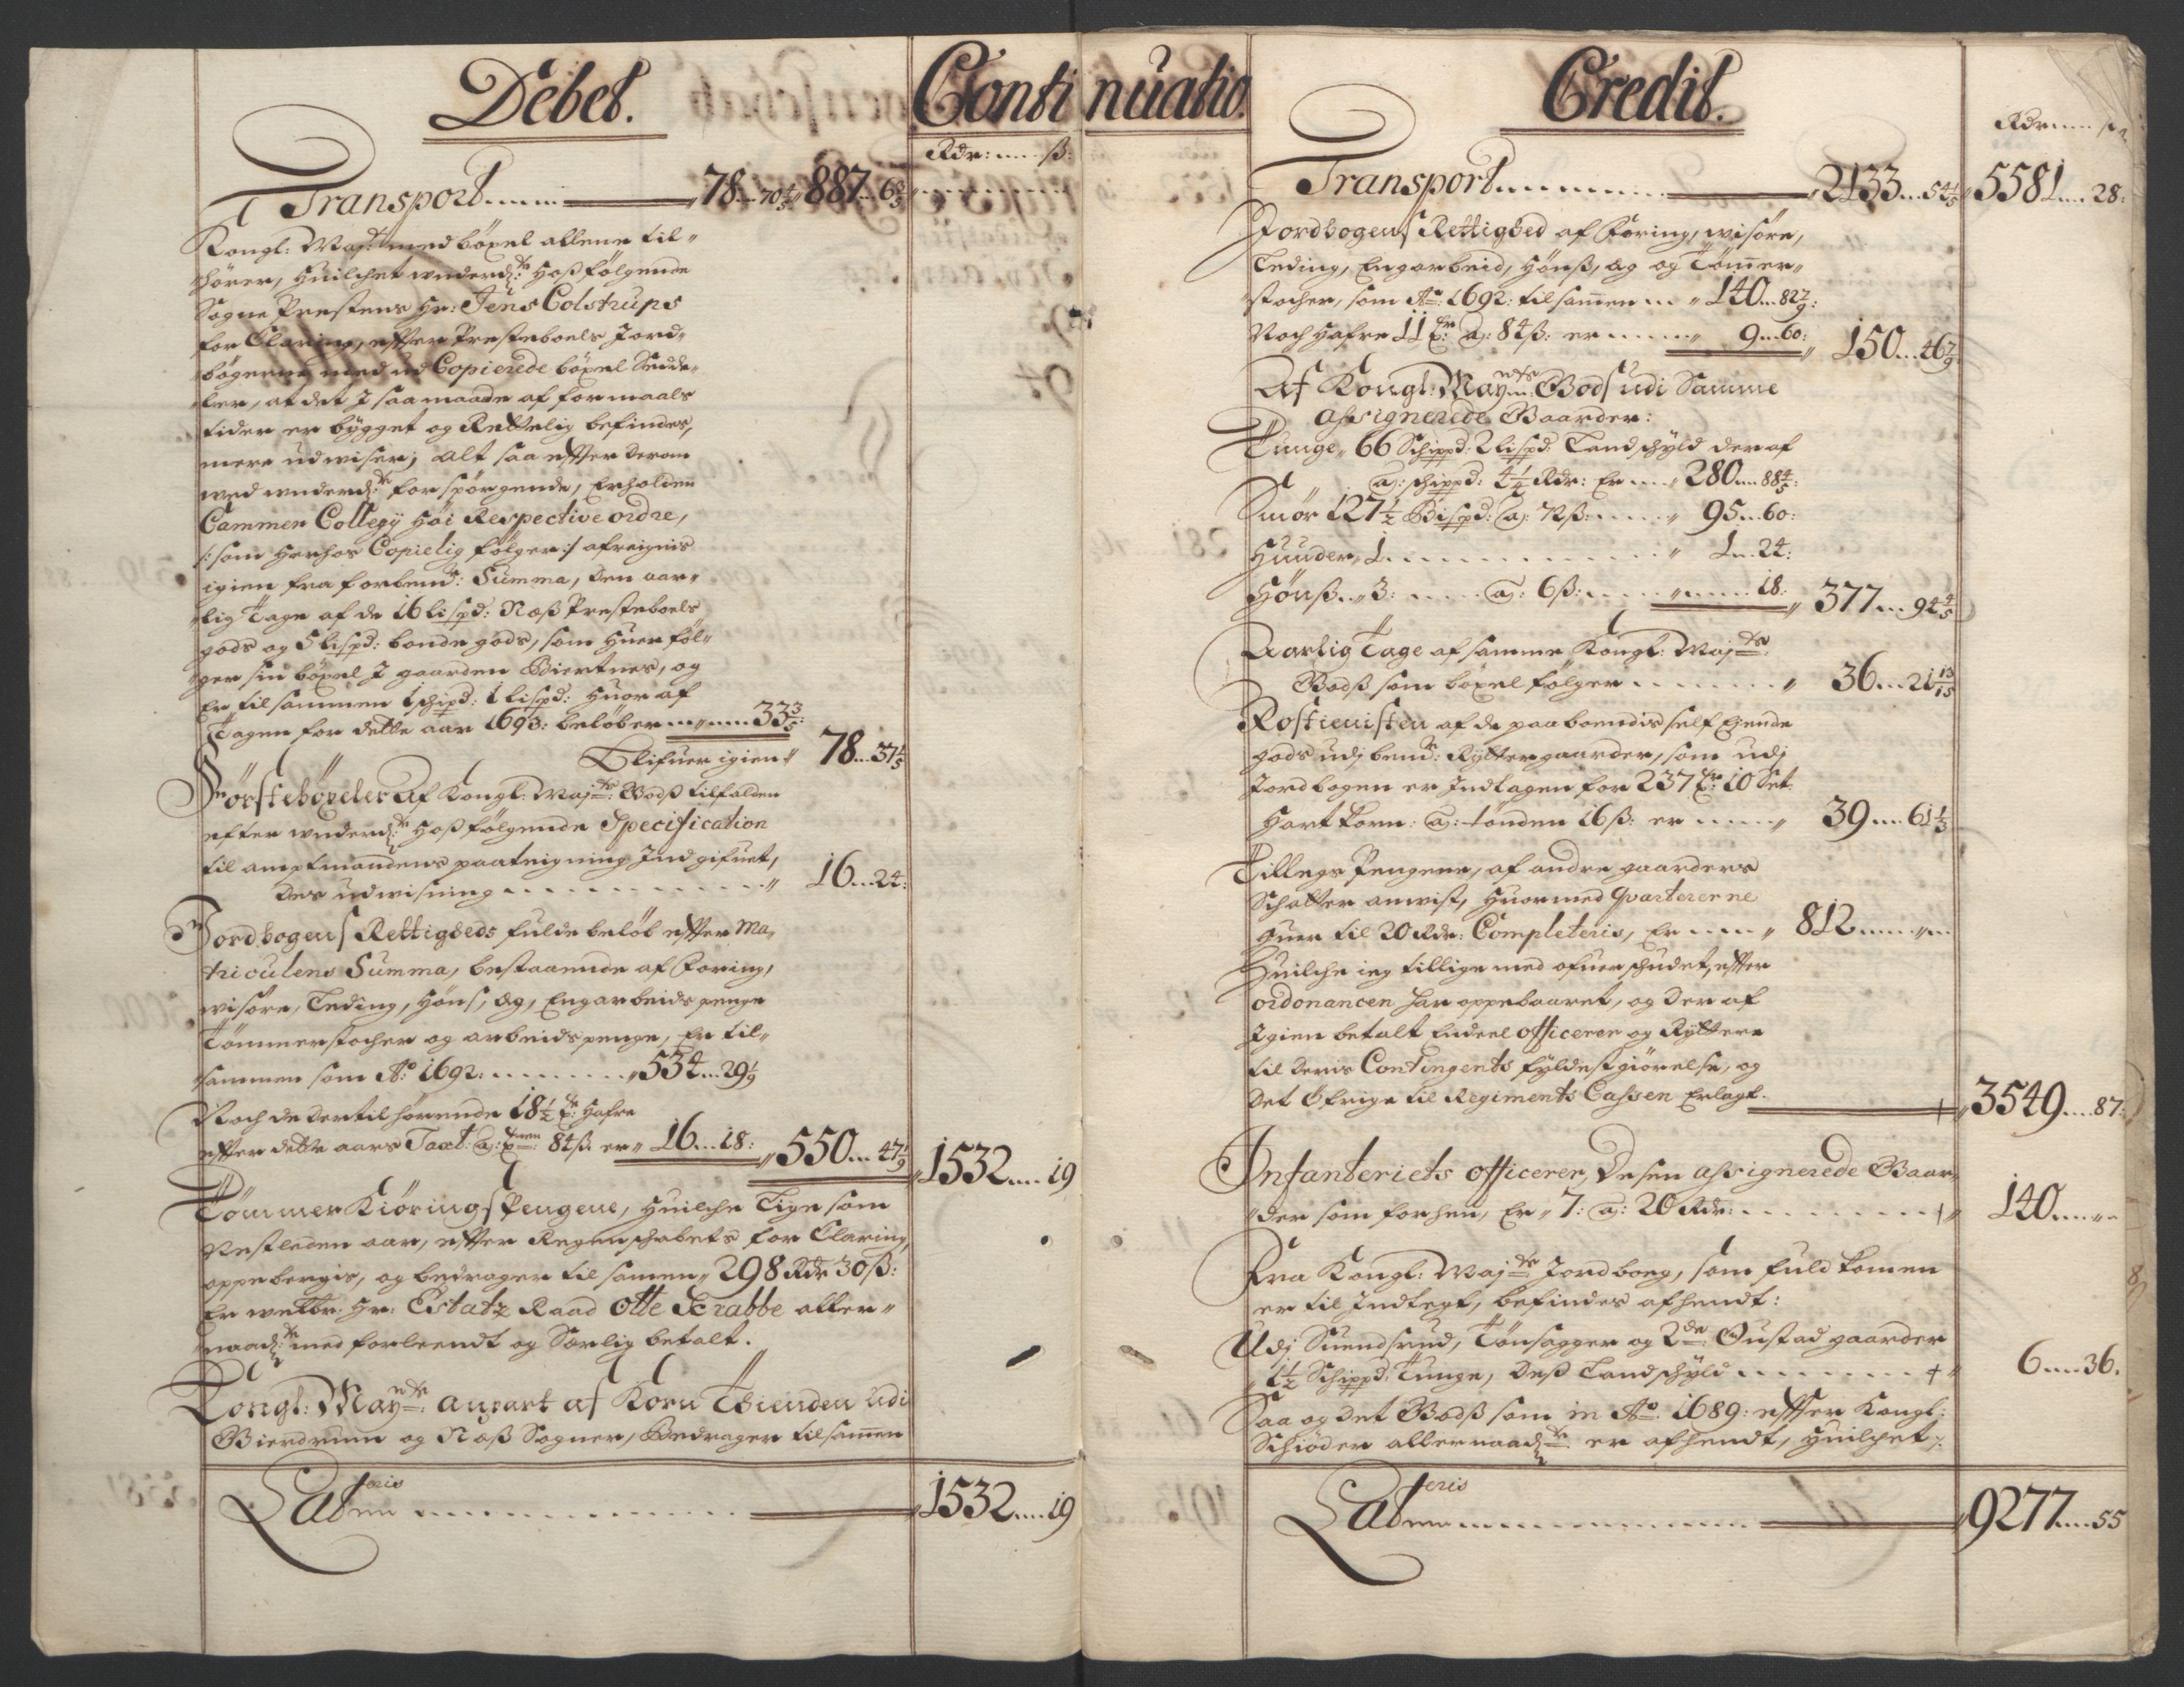 Debet. Conti
Rdr: ß:
Transport 78 70 4/5 887 6 2/5
Kongl: Maj:ts med böxel allene til
hörer, huilchet underd:te hosfölgende
Sogne Prestens Hr: Jens Colstrups
for Claring, effter Presteboels Jord-
bögerne med ud Copierede böxel Sedde-
ler, at det I saa maade af for maals
tider er bÿgget og Rettelig befindes,
mere udwiser; alt saa effter derom
wed underd:te forspörgende, Erholden
Cammer Collegÿ höi Respective ordre,
/: som herhos Copielig fölger :/ afreignis
igien fra forbem:te Summa, den aar-
lig Tage af de 16 lispd: Næß Presteboels
gods og 5 lispd: bonde gods, som huer föl-
ger sin böxel I gaarden Biertnes, og
Er tilsammen 1 schipd: 1 lispd: huor af
Tagen for dette aar 1693: belöber 33 3/5:
Blifuer igien 78 37 1/5
Förstebözeler Af Kongl: Maj:ts Godß tilfalden
efter underd:te hoßfölgende Specification
til amptmandens paateigning Indgifuet,
des udwisning 16 24:
Jordbogens Rettigheds fulde belöb effter Ma-
triculens Summa, bestaaende af Foring,
wisöre, Leding, höns, æg, Engarbeids penge
Tömmerstocher og arbeidspenge, Er til-
sammen som Ao: 1692: 534 29 1/9
Noch de dertil hörende 18 1/2 tr: Hafre
effter dette aars Taxt: a: tnen 84ß: er 16 18: 550 47 1/9 1532 19
Tömmer Kiörings Pengene, huilche Lige som
Nestleden aar, effter Regenschabets for Claring
oppebergis, og bedrager til samen 298 Rdr 30ß:
Er welbr. Hr: Estatz Raad Otte Scrabbe aller-
naad:te med forleendt og Særlig betalt.
Kongl: Maÿ:ts anpart af Korn Thienden udi
Gierdrum og Næß Sogner, Bedrager tilsamen
Lateris 1532 19
nuatio. Credit.
Rdr
Transport 2133 54 4/5 5581 28:
Jordbogens Rettighed af Foring, wisöre,
Leding, Engarbeid, hönß, æg og Tömer-
stocher, som Ao: 1692: tilsamen 140 82 7/9:
Noch Hafre 11 tr: a: 84ß: er 9 60: 150 46 7/9
Af Kongl: Maÿ:ts Gods udi Samme
assignerede Gaarder:
Tunge 66 Schippd: 2 lispd: Landschÿld der af
a: schippd: 4 1/4 Rdr: Er 280 88 4/5:
Smör 127 1/2 Bispd: a: 72ß: 95 60:
Huuder 1 1 24:
Hönß 3: a: 6ß: 18: 377 94 4/5
Aarlig Tage af samme Kongl: Maj:ts
Godß som böxel fölger 36 21 13/15
Rostienisten af de paaboendis self Ejende
gods udj bem:te Rÿttergaarder, som udj
Jordbogen er Indtagen for 237 tr: 10 Set
Hart Korn: a: tönden 16ß: er 39 61 1/3
Tillegs Pengene, af andre gaarders
Schatter anwist, huormed Qvartererne
huer til 20 Rdr: Completeris, Er 812
Huilche ieg tillige med ofuerschudet, effter
ordonancen har oppebaaret, og der af
Igien betalt Endeel officerer og Rÿttere
til deris Contingents fÿldestgiörelse, og
Det öfrige til Regiments Cassen Erlagt. 3549 87:
Infanteriets officerer, Desen assignerede Gaar-
der som forhen, Er 7: a: 20 Rdr: 140
Fra Kongl: Maj:ts Jordboeg, som fuldkomen
er til Indtegt, befindes afhendt:
Udj Suendsrud, Tönsagger og 2de Gustad gaarder
1 1/2 Schippd: Tunge, Deß Landschÿld 6 36.
Saa og det Godß som in Ao: 1689: effter Kongl:
Schiöder allernaad:te er afhendt, huilchet
Lateris 9277 55